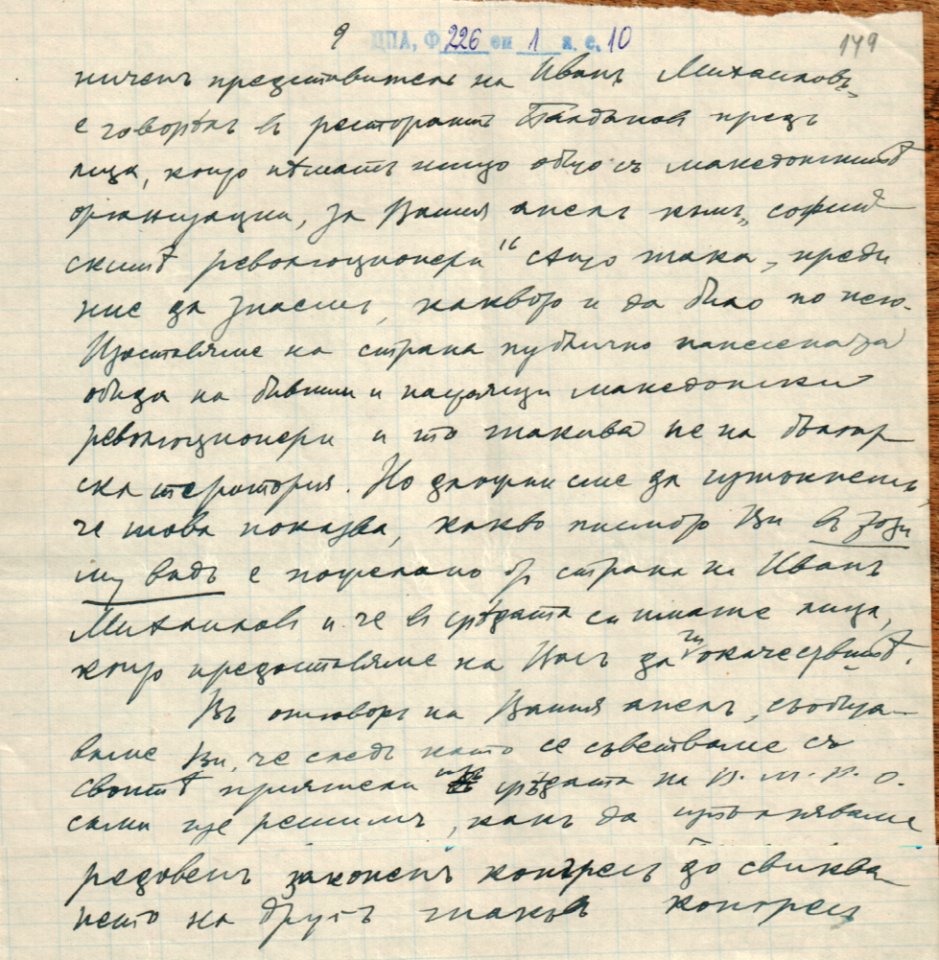 9 ЦПА, Ф 226 оп 1 а. е. 10 149
ниченъ представитель на Иванъ Михаиловъ,
е говорѣлъ въ ресторантъ Балканъ предъ
лица, които нѣматъ нищо общо съ македонскитѣ
организации, за Вашия апелъ към „софий-
скитѣ революционери“ също така, преди
ние да знаемъ, каквото и да било по него.
Изоставяме на страна публично нанесената
обида на бивши и настоящи македонски
революционери и то такива не на българ-
ска територия. Но длъжни сме да изтъкнемъ,
че това показва, какво писмото Ви въ този
му видъ е пожелано отъ страна на Иванъ
Михаиловъ и че въ срѣдата си имате лица,
които предоставяме на Васъ да ги окачествите.
Въ отговоръ на Вашия апелъ, съобща-
ваме Ви, че следъ като се съветваме съ
своитѣ приятели изъ срѣдата на В. М. Р. О.
сами ще решимъ, какъ да изпълняваме
редовенъ законенъ конгресъ до свиква-
нето на другъ такъвъ конгресъ